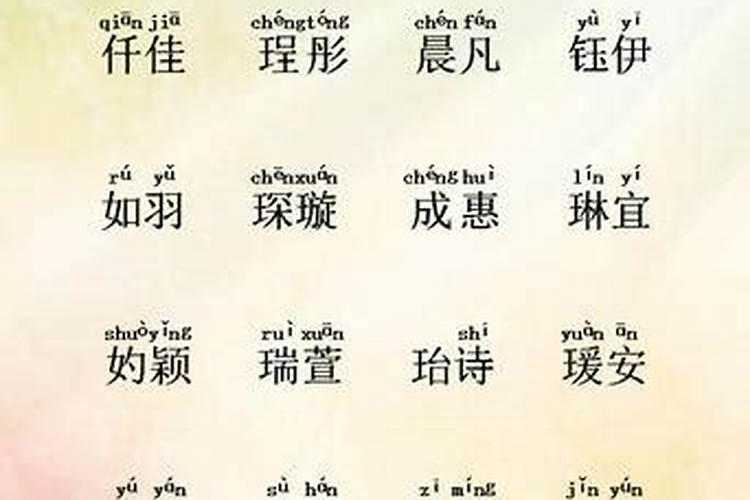 qiān jiā chéngtóng chén fán yù yī
仟佳 珵彤 晨凡 钰伊
rú yǔ chēnxuán chénghuì lín yí
如羽 琛璇 成惠 琳宜
shuòyǐng ruì xuān shī yuàn ān
妁颖 瑞萱 珆诗 瑗安
yú yán sù hán zī míng jǐn yún